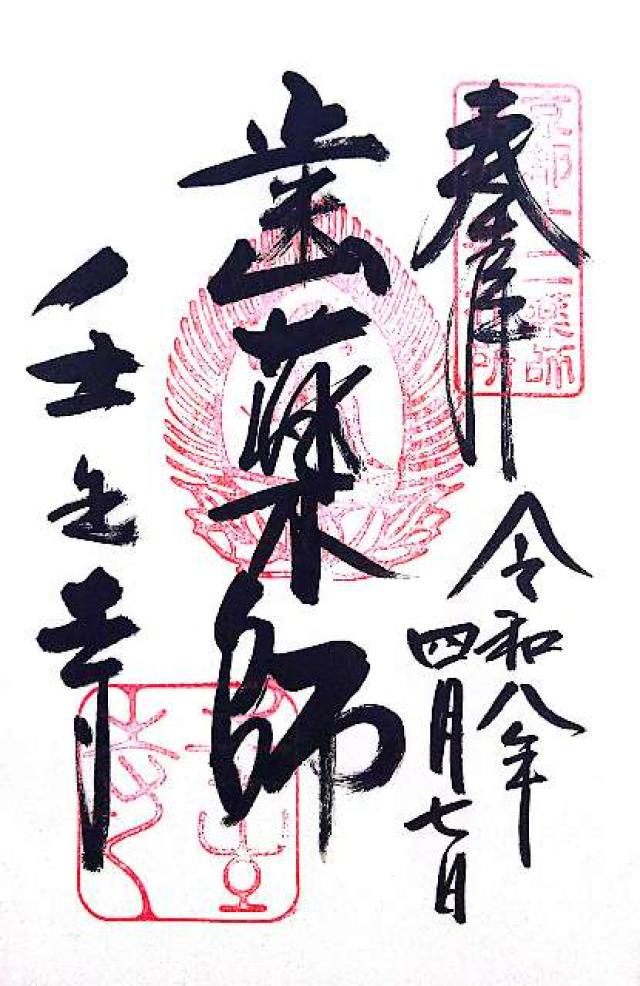 京都十二薬師
奉拝
令和八年
四月七日
歯薬師
壬生寺